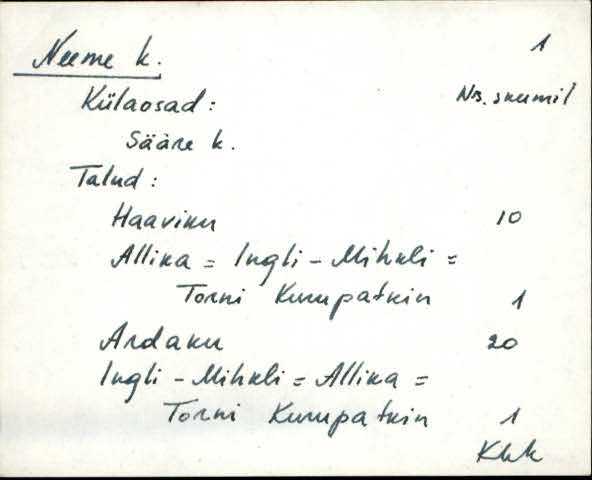 Neeme k. 1
Külaosad: Nrs. skeemil
Sääre k.
Talud:
Haaviku 10
Allika = Ingli - Mihkli =
Torni Kuropatkin 1
Ardaku 20
Ingli - Mihkli = Allika =
Torni Kuropatkin 1
Khk